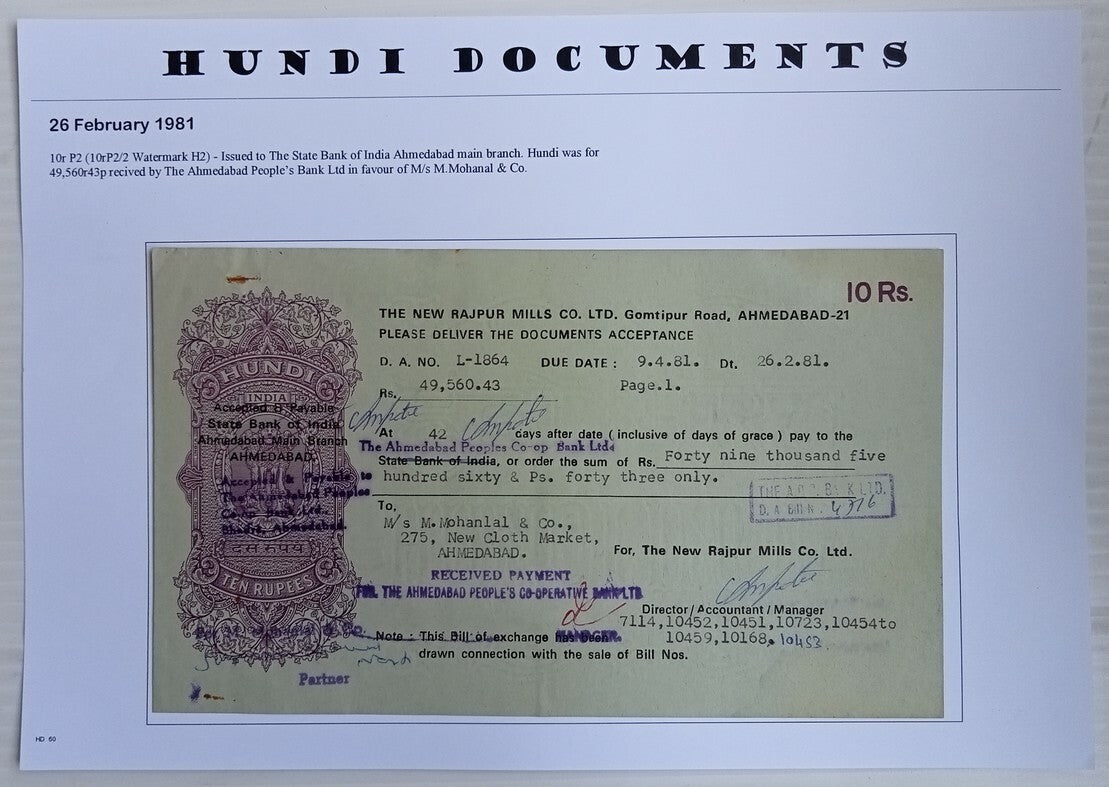 HUNDI DOCUMENTS
26 February 1981
10r P2 (10rP2/2 Watermark H2) - Issued to The State Bank of India Ahmedabad main branch. Hundi was for
49,560r43p recived by The Ahmedabad People's Bank Ltd in favour of M/s M.Mohanal & Co.
10 Rs.
THE NEW RAJPUR MILLS CO. LTD. Gomtipur Road, AHMEDABAD-21
PLEASE DELIVER THE DOCUMENTS ACCEPTANCE
D. A. NO. L-1864 DUE DATE : 9.4.81. Dt. 26.2.81.
Rs. 49,560.43 Page.1.
HUNDI
INDIA
Accepted & Payable
State Bank of India
Ahmedabad Main Branch
AHMEDABAD.
Accepted & Payable to
The Ahmedabad Peoples
Co-op Bank Ltd.,
Bhadra, Ahmedabad.
दस रुपय
TEN RUPEES
At 42 days after date ( inclusive of days of grace ) pay to the
The Ahmedabad Peoples Co-op Bank Ltd
State Bank of India, or order the sum of Rs. Forty nine thousand five
hundred sixty & Ps. forty three only.
D. A. Bill N. 4716
To,
M/s M.Mohanlal & Co.,
275, New Cloth Market,
AHMEDABAD.
For, The New Rajpur Mills Co. Ltd.
RECEIVED PAYMENT
FOR, THE AHMEDABAD PEOPLE'S CO-OPERATIVE BANK LTD
MANAGER.
Director/Accountant/Manager
7114,10452,10451,10723,10454to
10459,10168, 10453
Note : This Bill of exchange has been
drawn connection with the sale of Bill Nos.
Partner
HD 60